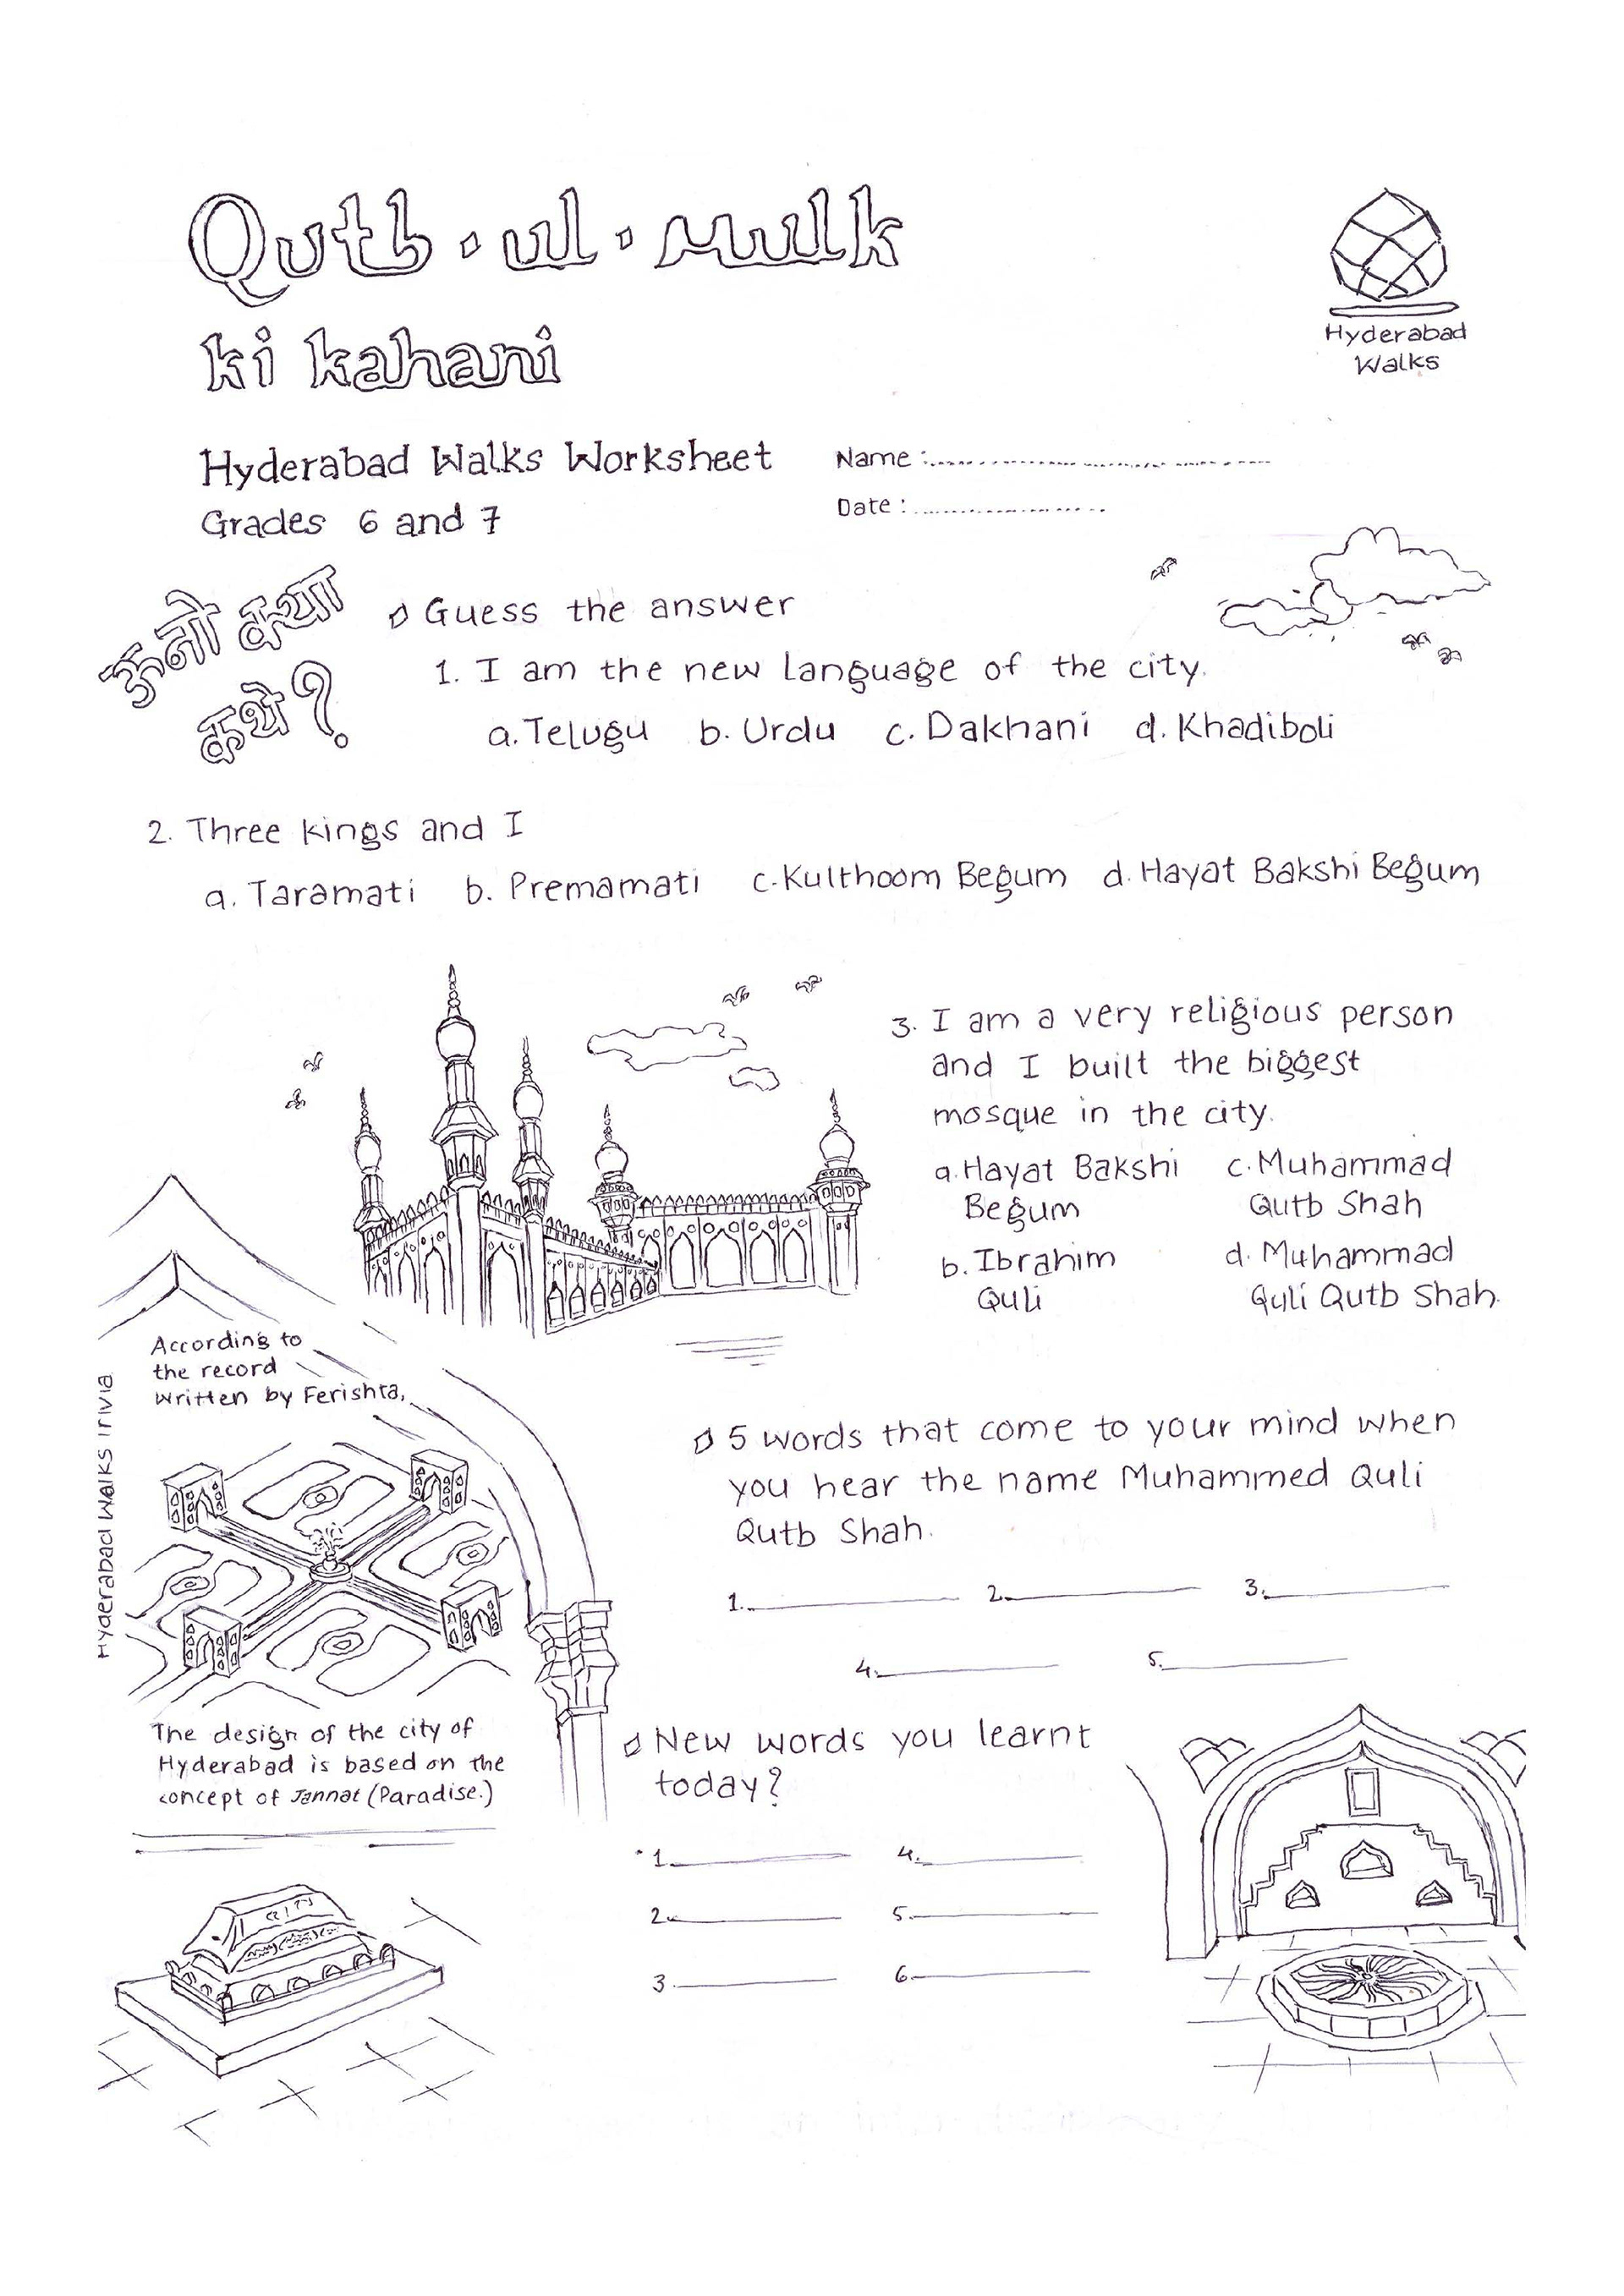 Qutb·ul·mulk
ki kahani
Hyderabad
Walks
Hyderabad Walks Worksheet
Grades 6 and 7
Name :
Date :
ऊनो क्या
कथे?
Guess the answer
1. I am the new language of the city.
a. Telugu b. Urdu c. Dakhani d. Khadiboli
2. Three kings and I
a. Taramati b. Premamati c. Kulthoom Begum d. Hayat Bakshi Begum
3. I am a very religious person
and I built the biggest
mosque in the city.
a. Hayat Bakshi
Begum
b. Ibrahim
Quli
c. Muhammad
Qutb Shah
d. Muhammad
Quli Qutb Shah.
Hyderabad Walks Trivia
According to
the record
written by Ferishta,
The design of the city of
Hyderabad is based on the
concept of Jannat (Paradise.)
5 words that come to your mind when
you hear the name Muhammed Quli
Qutb Shah.
1. 2. 3.
4. 5.
New words you learnt
today?
1. 4.
2. 5.
3. 6.